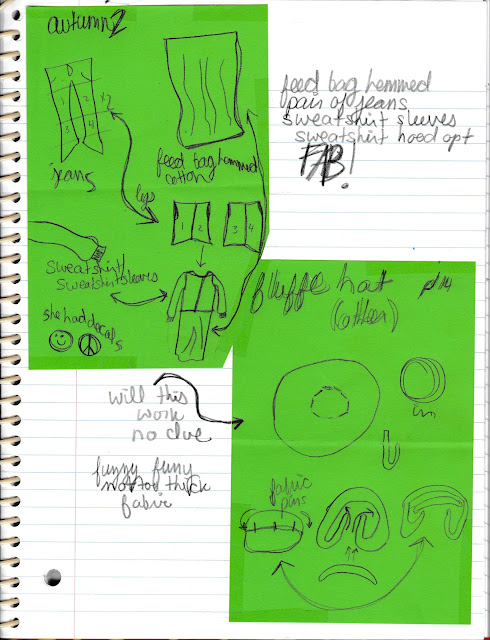 autumn 2
D
1 2
3 4
x2
jeans
feed bag hemmed
cotton
legs
1 2
3 4
sweatshirt/
sweatshirt sleeves
she had decals
feed bag hemmed
pair of jeans
sweatshirt sleeves
sweatshirt hood opt
FAB!
hat
will this
work
no clue
funny funy
not too thick
fabric
fabric
pins